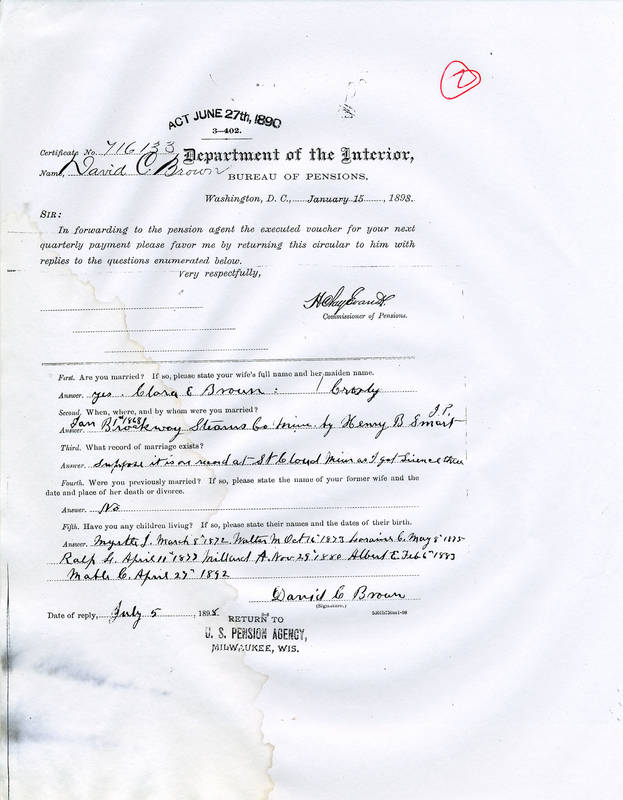 2
ACT JUNE 27th, 1890
3—402.
Certificate No. 716133
Department of the Interior,
Name, David C. Brown
BUREAU OF PENSIONS,
Washington, D. C., January 15, 1898.
SIR:
In forwarding to the pension agent the executed voucher for your next
quarterly payment please favor me by returning this circular to him with
replies to the questions enumerated below.
Very respectfully,
H Clay Evans
Commissioner of Pensions.
First. Are you married? If so, please state your wife's full name and her maiden name.
Answer. yes. Clara E Brown: / Crosby
Second. When, where, and by whom were you married?
Answer. Jan 1st 1868 Brockway Stearns Co Minn. by Henry B Smart J.P.
Third. What record of marriage exists?
Answer. Suppose it is on record at St Cloud Minn as I got Lisence there
Fourth. Were you previously married? If so, please state the name of your former wife and the
date and place of her death or divorce.
Answer. No
Fifth. Have you any children living? If so, please state their names and the dates of their birth.
Answer. Myrtte J. March 8th 1872 Walter M Oct 16th 1873 C. May 8th 1875
Ralf G. April 10th 1877 Millard A. Nov 28th 1880 Albert E Feb 6th 1883
Mable C. April 29th 1892
David C Brown
(Signature.)
Date of reply, July 5, 1898.
RETURN TO
U. S. PENSION AGENCY,
MILWAUKEE, WIS.